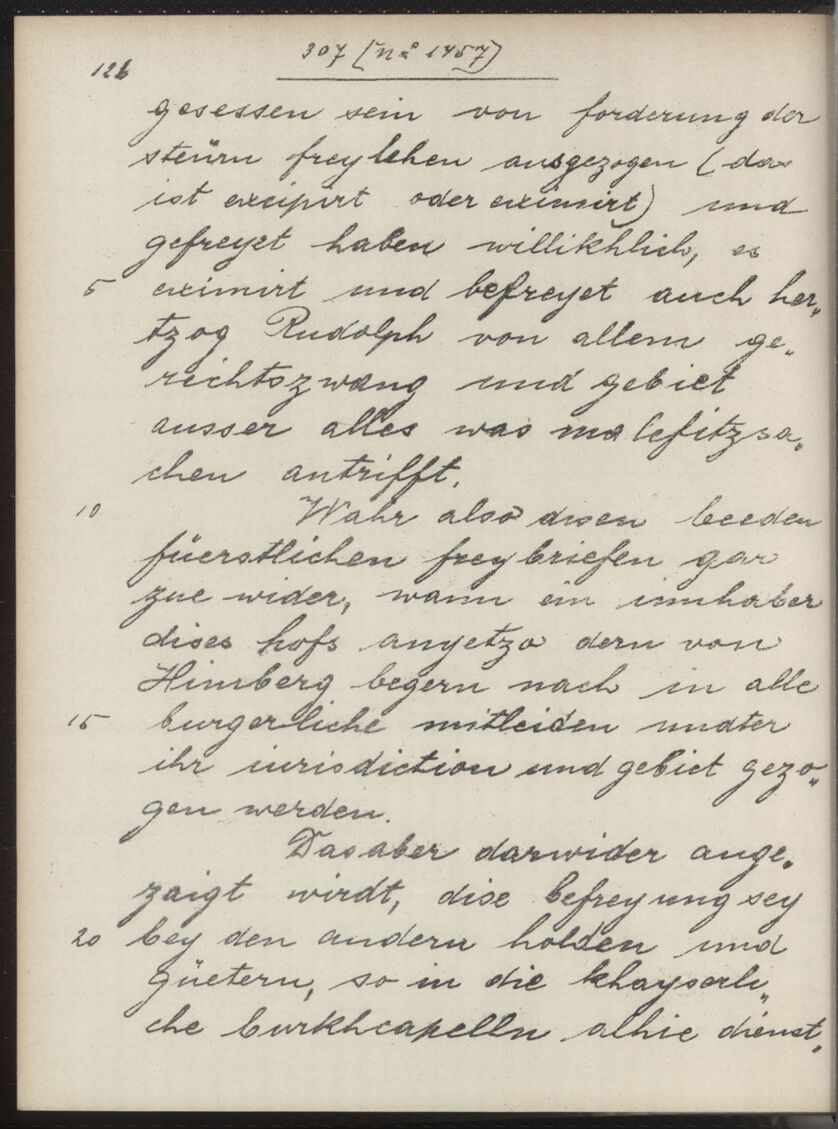 126
307 [N° 1457]
gesessen sein von forderung der
steürn freylehen ausgezogen (das
ist excipirt oder eximirt) und
gefreyet haben willikhlich, es
5 eximirt und befreyet auch her„
tzog Rudolph von allem ge„
richtszwang und gebiet
ausser alles was malefitzsa„
chen antrifft.
10 Wahr also disen beeden
füerstlichen freybriefen gar
zue wider, wann ein innhaber
dises hofs angetzo dern von
Himberg begern nach in alle
15 burgerliche mitleiden undter
ihr iurisdiction und gebiet gezo„
gen werden.
Das aber darwider ange„
zaigt wirdt, dise befreyung sey
20 bey den andern holden und
güetern, so in die khayserli„
che burkhcapelln alhie dienst„